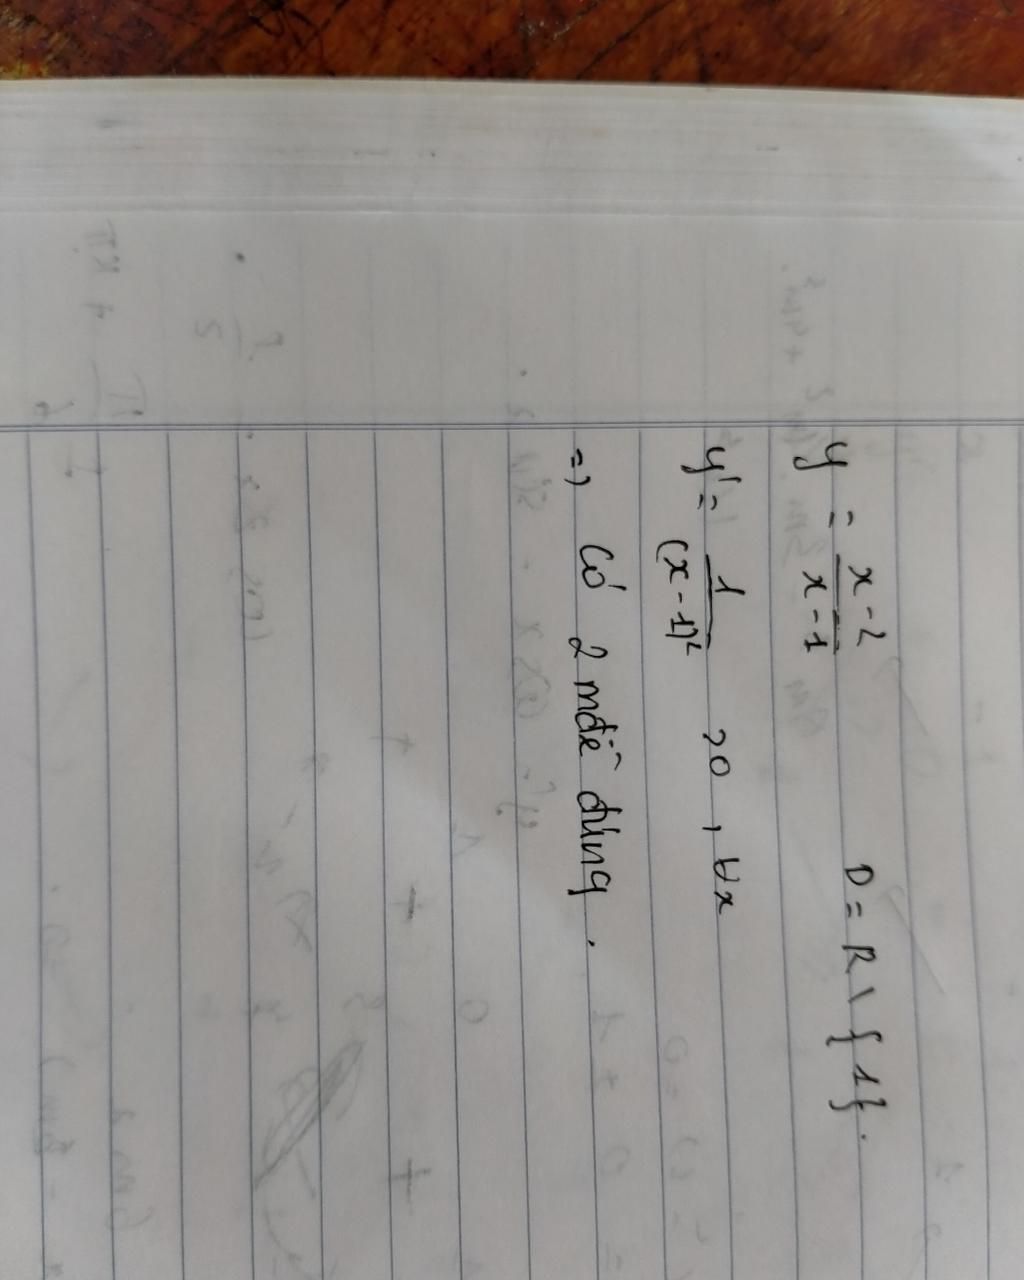 y = \frac{x-2}{x-1} D = R \ {1}.
y' = \frac{1}{(x-1)²} >0, ∀x
=> Có 2 mđề đúng.